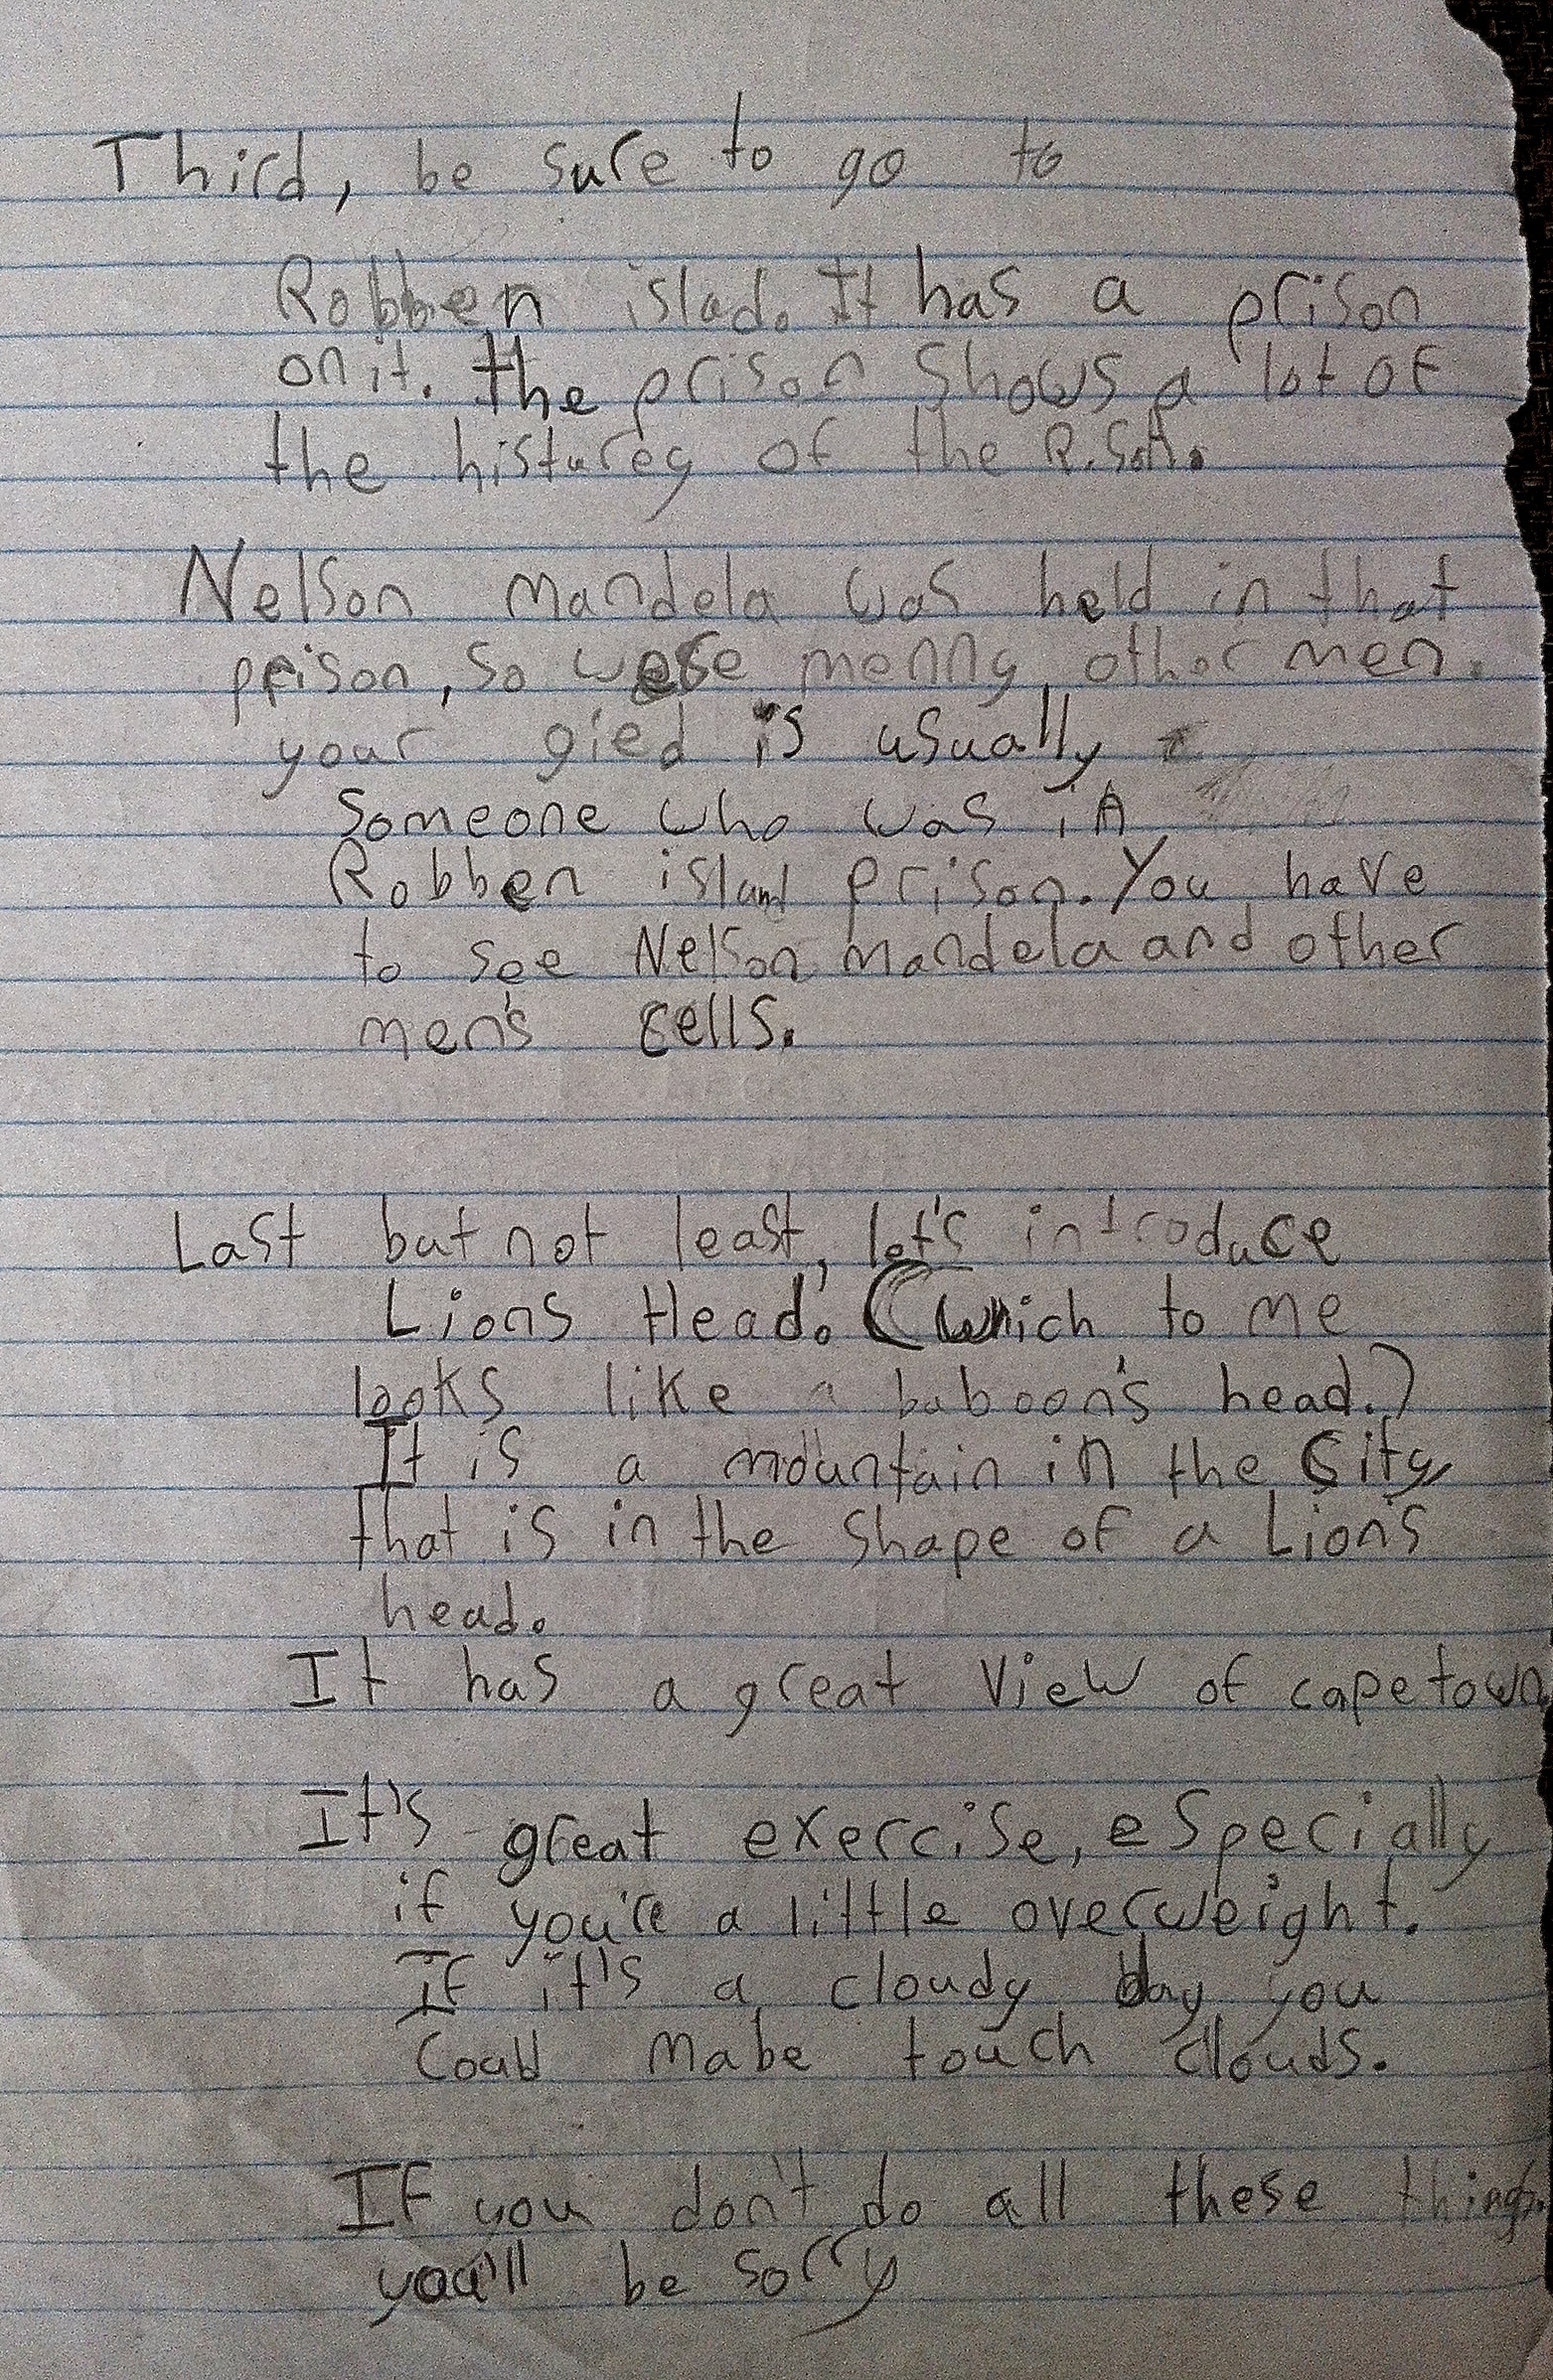 Third, be sure to go to
Robben islad. It has a prison
on it. the prison shows a lot of
the histurey of the
Nelson Mandela was held in that
prison, so were menny other men.
your gied is usually
Someone who was in
Robben island prison. You have
to see Nelson Mandela and other
men's cells.
Last but not least, let's introduce
Lions Head. (which to me
looks like a baboon's head.)
It is a mountain in the City,
that is in the shape of a Lion's
head.
It has a great view of cape town
It's great exercise, especially
if you're a little overweight.
If it's a cloudy day you
Could mabe touch clouds.
If you don't do all these things.
you'll be sorry